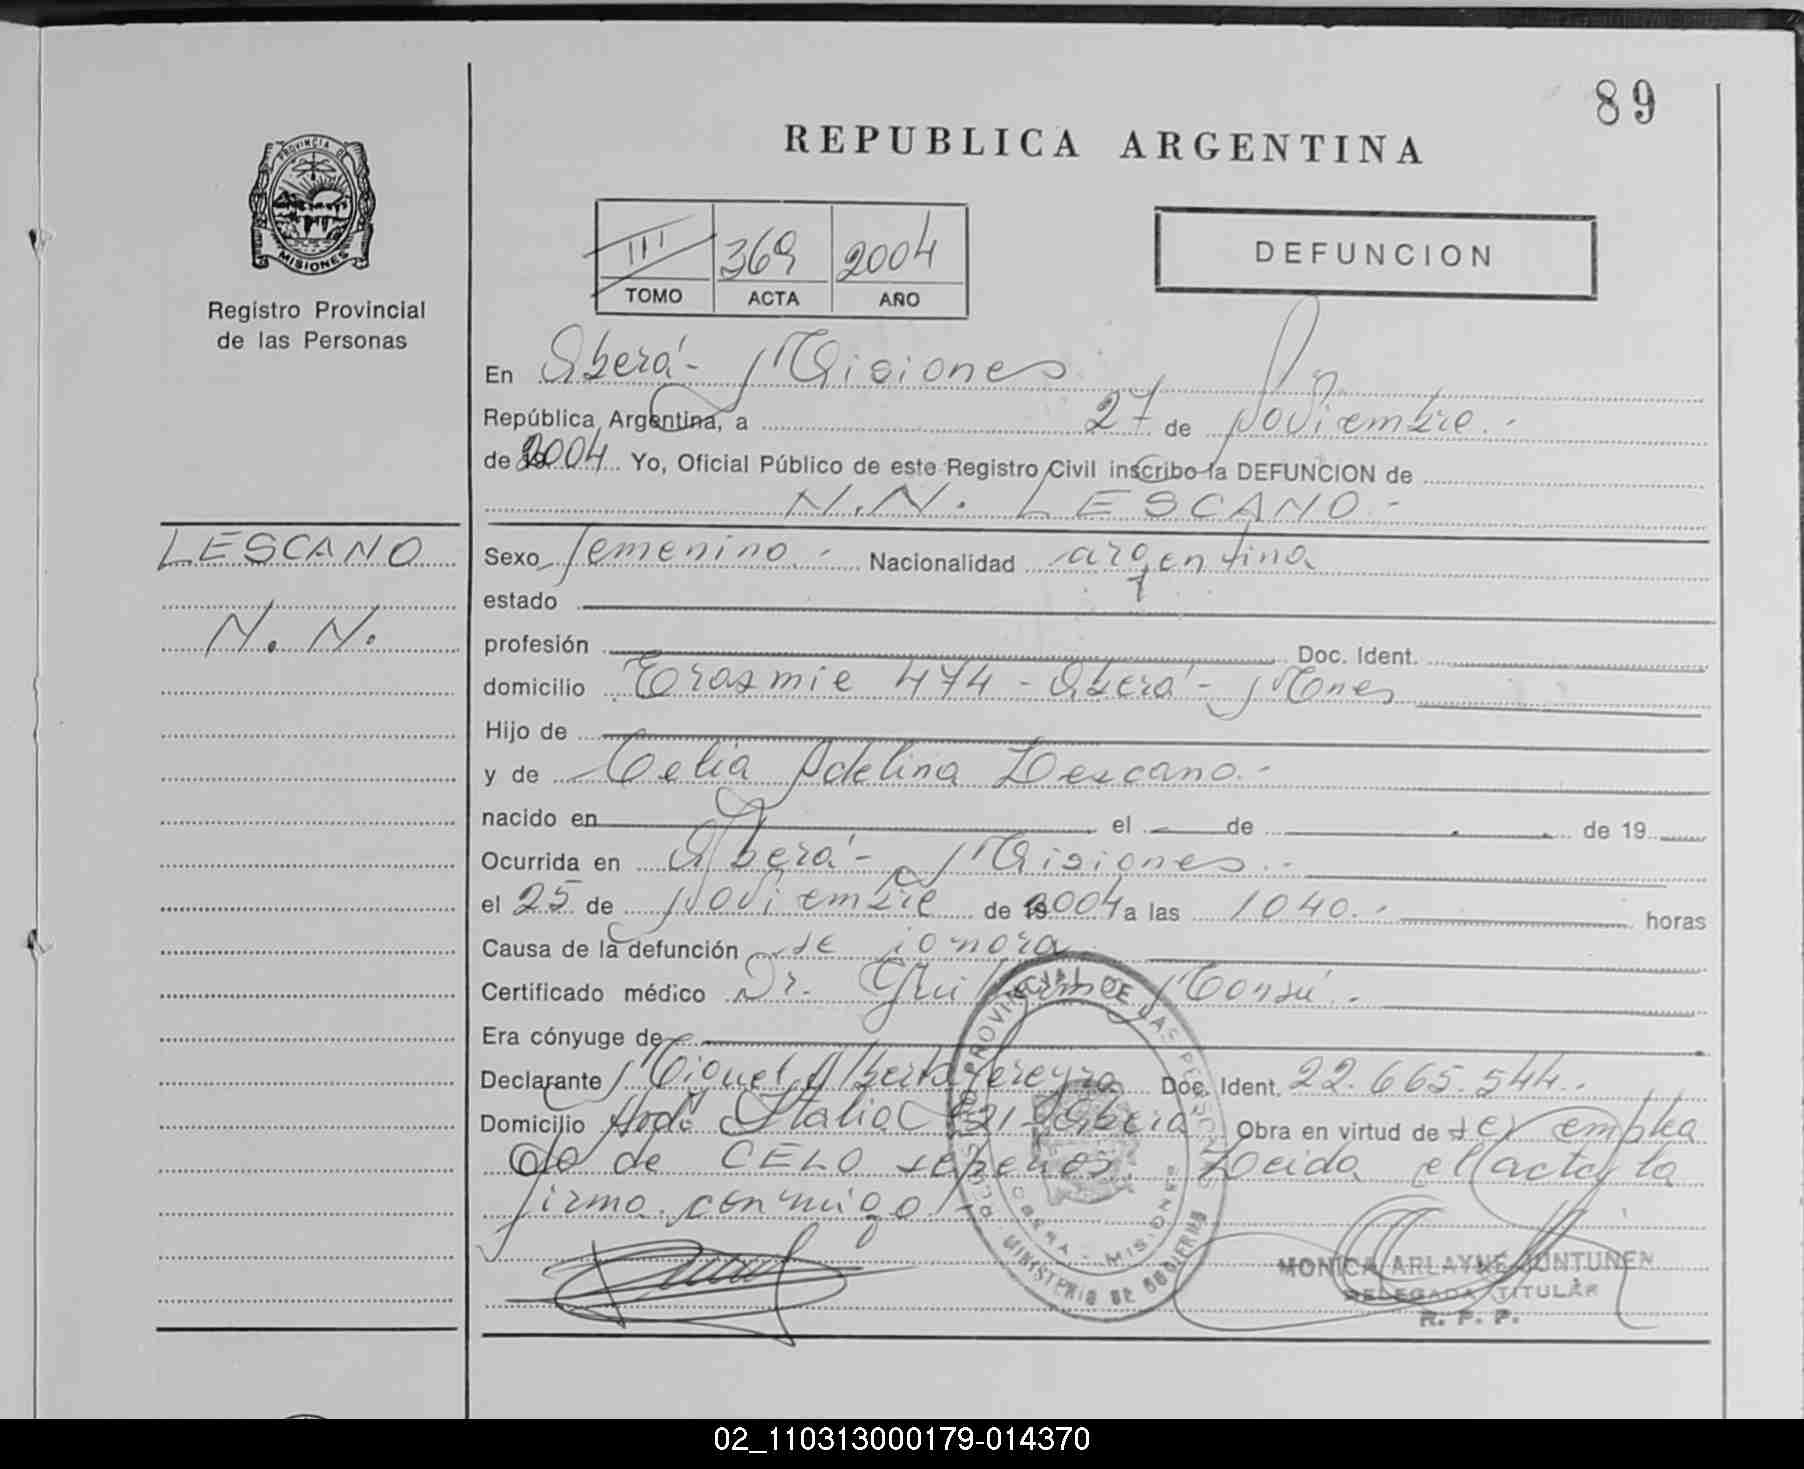 89
REPUBLICA ARGENTINA
PROVINCIA DE
MISIONES
Registro Provincial
de las Personas
III 369 2004
TOMO ACTA AÑO
DEFUNCION
En Oberá - Misiones
República Argentina, a 27 de Noviembre.-
de 2004 Yo, Oficial Público de este Registro Civil inscribo la DEFUNCION de
N.N. LESCANO.-
LESCANO
N. N.
Sexo femenino.- Nacionalidad argentina
estado
profesión Doc. Ident.
domicilio 474 - Oberá - Mnes
Hijo de
y de Celia Adelina Lescano.-
nacido en el de de 19
Ocurrida en Oberá - Misiones.-
el 25 de Noviembre de 2004 a las 1040.- horas
Causa de la defunción se ignora
Certificado médico Dr.
Era cónyuge de
Declarante Miguel Alberto Pereyra Doc. Ident. 22.665.544.-
Domicilio Avda Italia 321 - Oberá Obra en virtud de ser emplea
do de CELO sepelios. Leida el acta, la
firma conmigo
REGISTRO PROVINCIAL DE LAS PERSONAS
OBERA - MISIONES
MINISTERIO DE GOBIERNO
MONICA ARLAYNE JUNTUNEN
DELEGADA TITULAR
R. P. P.
02_110313000179-014370